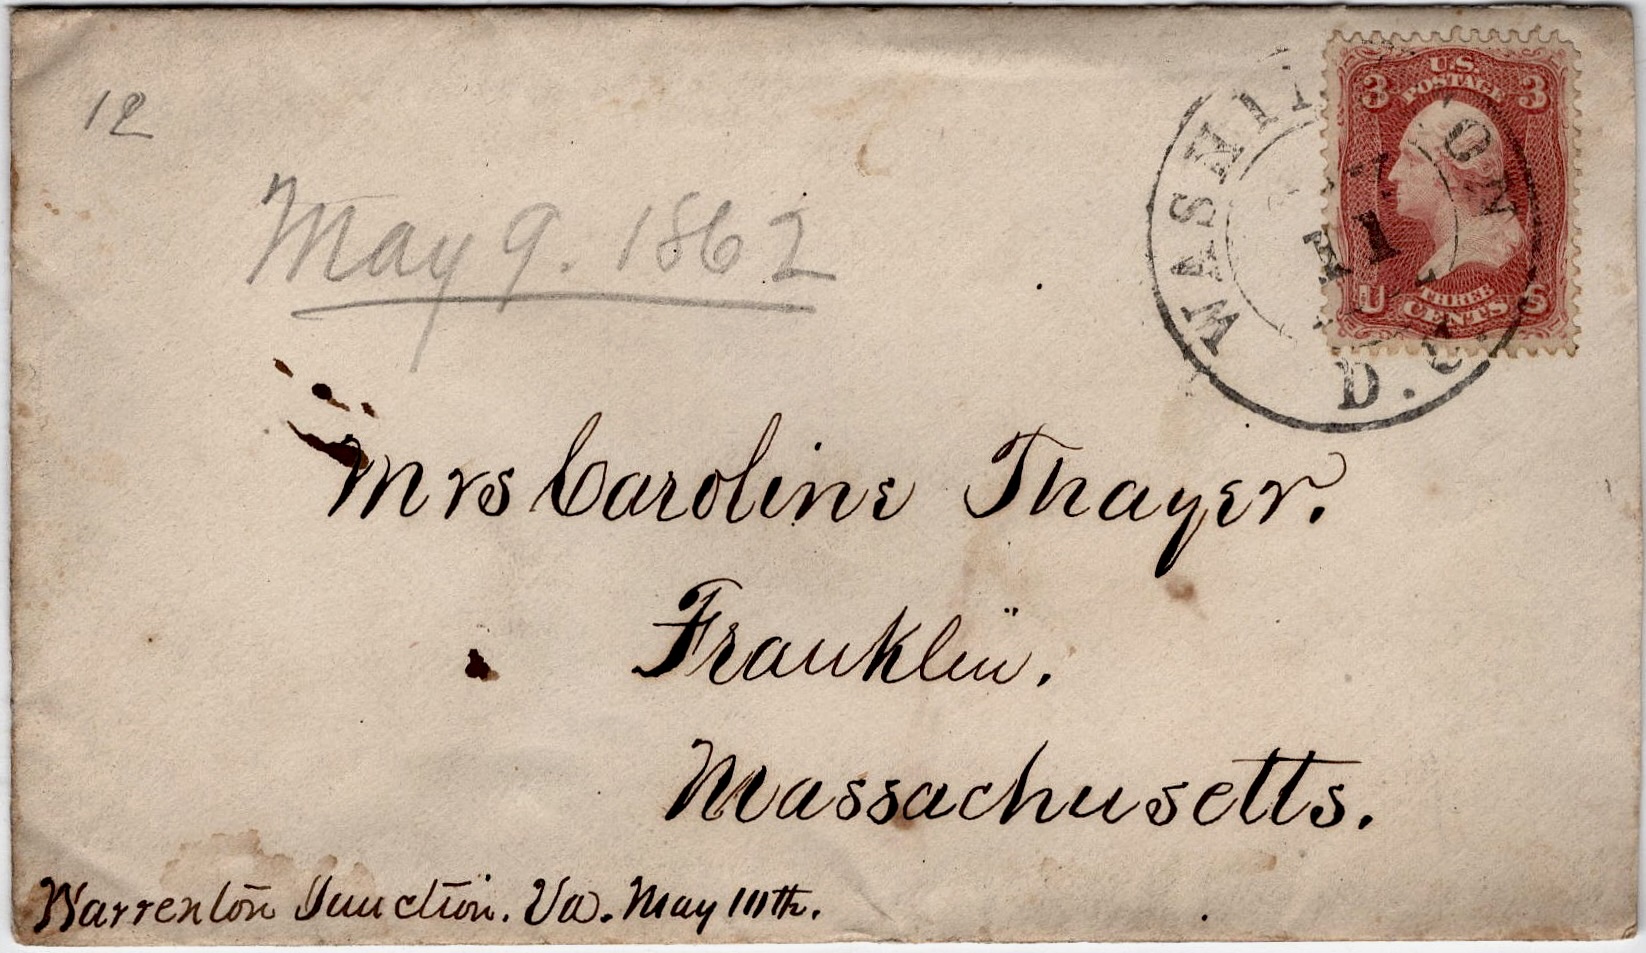 12
May 9. 1862
WASHINGTON
D.C.
3 U.S. POSTAGE 3
U THREE CENTS S
Mrs Caroline Thayer.
Franklin.
Massachusetts.
Warrenton Junction. Va. May 10th.